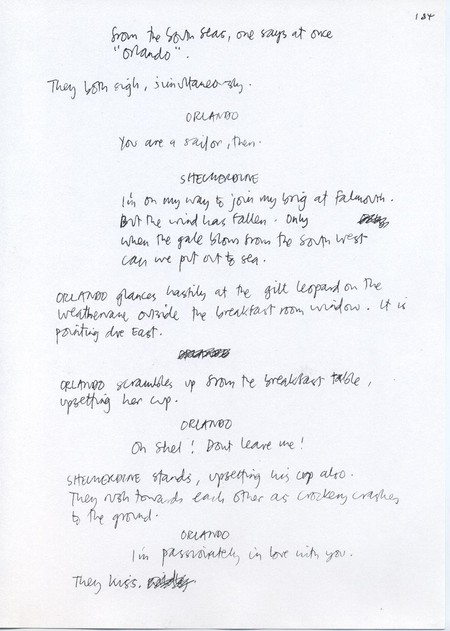 124
from the South Seas, one says at once
"Orlando".
They both sigh, simultaneously.
ORLANDO
You are a sailor, then.
SHELMERDINE
I'm on my way to join my brig at Falmouth.
But the wind has fallen. Only
when the gale blows from the South West
can we put out to sea.
ORLANDO glances hastily at the gilt leopard on the
weathervane outside the breakfast room window. It is
pointing due East.
ORLANDO scrambles up from the breakfast table,
upsetting her cup.
ORLANDO
Oh Shel! Dont leave me!
SHELMERDINE stands, upsetting his cup also.
They rush towards each other as crockery crashes
to the ground.
ORLANDO
I'm passionately in love with you.
They kiss.